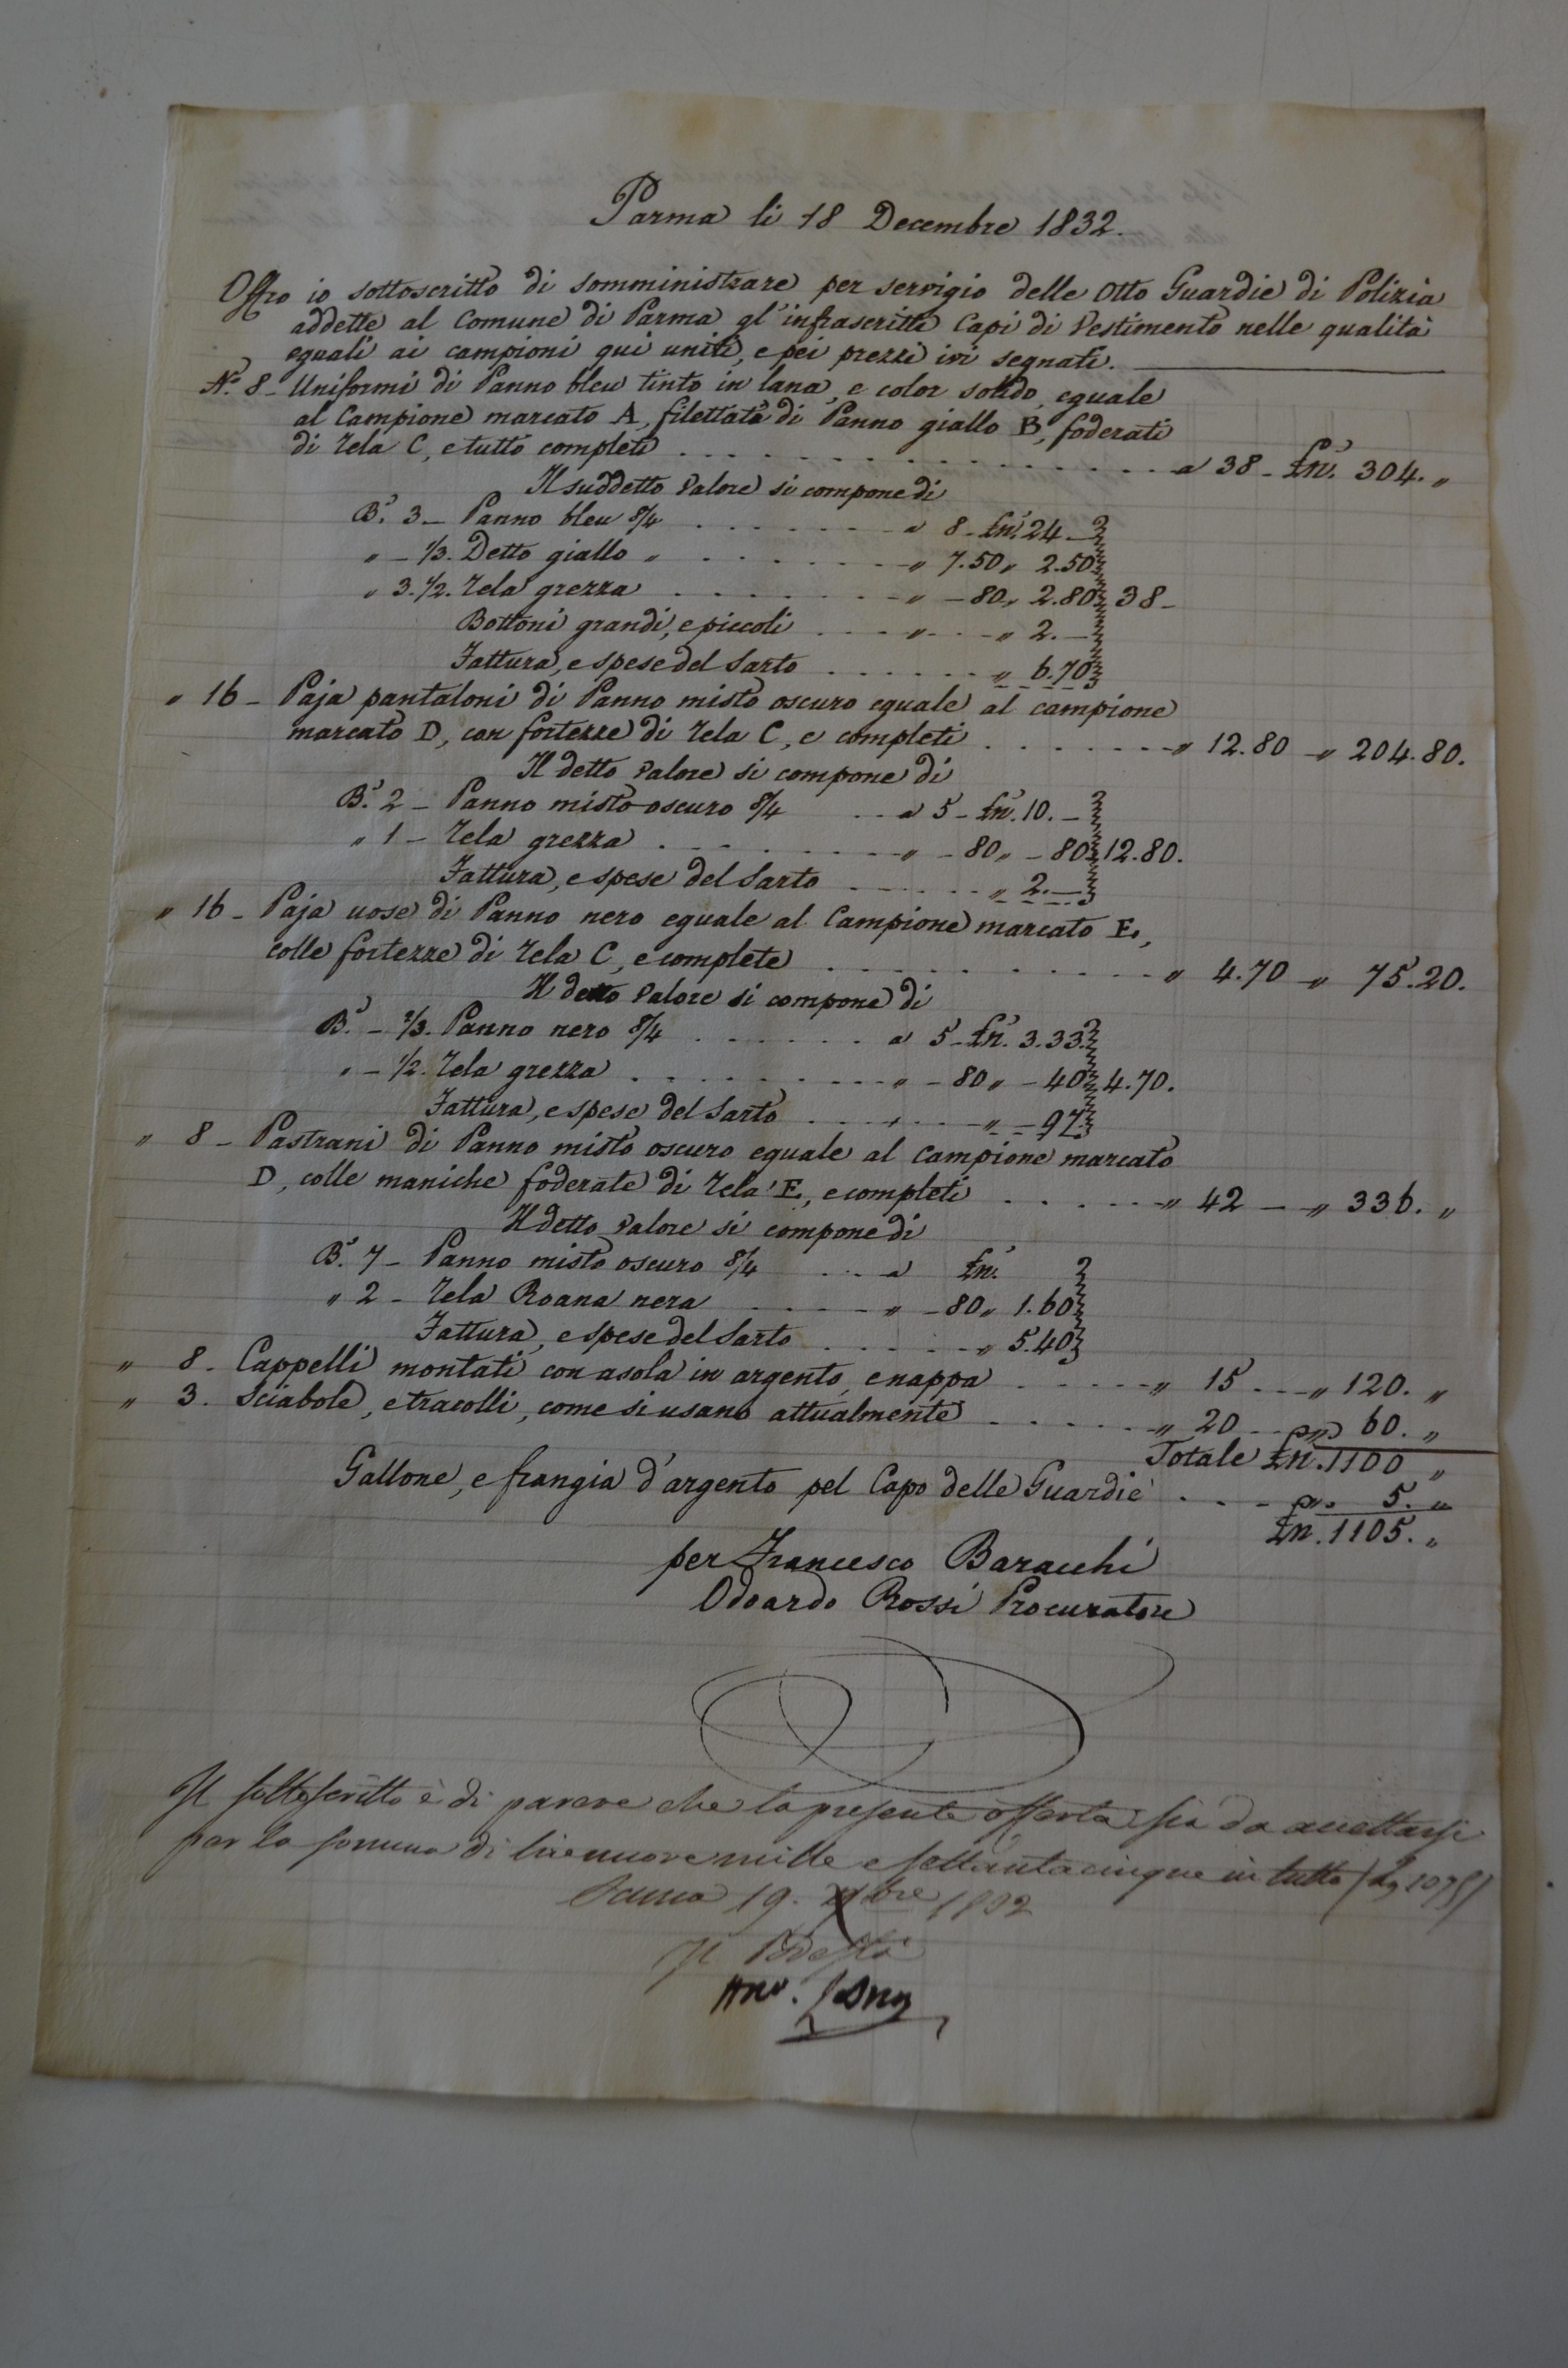 Parma li 18 Decembre 1832.
Offro io sottoscritto di somministrare per servigio delle otto Guardie di Polizia
addette al Comune di Parma gl'infrascritti Capi di Vestimento nelle qualità
eguali ai campioni qui uniti, e pei prezzi ivi segnati.
N.° 8 - Uniformi di Panno bleu tinto in lana, e color solido, eguale
al Campione marcato A, filettata di Panno giallo B, foderati
di tela C, e tutto completi . . . . . . . . a 38 - Ln. 304. „
Il suddetto valore si compone di
B.a 3 - Panno bleu 8/4 . . . . . a 8 - Ln. 24 -
„ - 1/3. Detto giallo „ . . . . . „ 7.50 „ 2.50
„ 3.1/2. Tela grezza . . . . . „ - 80 „ 2.80 38 -
Bottoni grandi, e piccoli . . . „ . . - „ 2. -
Fattura, e spese del Sarto . . . . . „ 6.70
„ 16 - Paja pantaloni di Panno misto oscuro eguale al campione
marcato D, con fortezze di tela C, e completi . . . . . „ 12.80 - „ 204.80.
Il detto valore si compone di
B.a 2 - Panno misto oscuro 8/4 . . a 5 - Ln. 10. -
„ 1 - Tela grezza . . . . . „ - 80 „ - 80 12.80.
Fattura, e spese del Sarto . . . . „ 2. -
„ 16 - Paja uose di Panno nero eguale al Campione marcato E,
colle fortezze di tela C, e complete . . . . . . „ 4.70 - „ 75.20.
Il detto valore si compone di
B.a - 2/3. Panno nero 8/4 . . . . . a 5 - Ln. 3.33
„ - 1/2. Tela grezza . . . . . „ - 80 „ - 40 4.70.
Fattura, e spese del Sarto . . . . . „ - 97
„ 8 - Pastrani di Panno misto oscuro eguale al campione marcato
D, colle maniche foderate di tela E, e completi . . . . „ 42 - „ 336. „
Il detto valore si compone di
B.a 7 - Panno misto oscuro 8/4 . . . a Ln.
„ 2 - Tela Roana nera . . . . „ - 80 „ 1.60
Fattura, e spese del Sarto . . . . . „ 5.40
„ 8. Cappelli montati con asola in argento, e nappa . . . . „ 15 . . - „ 120. „
„ 3. Sciabole, e tracolli, come si usano attualmente . . . . „ 20 . . „ 60. „
Totale Ln. 1100 „
Gallone, e frangia d'argento pel Capo delle Guardie . . . „ 5. „
Ln. 1105. „
per Francesco Baracchi
Odoardo Rossi Procuratore
Il sottoscritto è di parere che la presente offerta sia da accettarsi
per la somma di lire nuove mille e settantacinque in tutto (Ln 1075)
Parma 19. Xbre 1832
Il Podestà